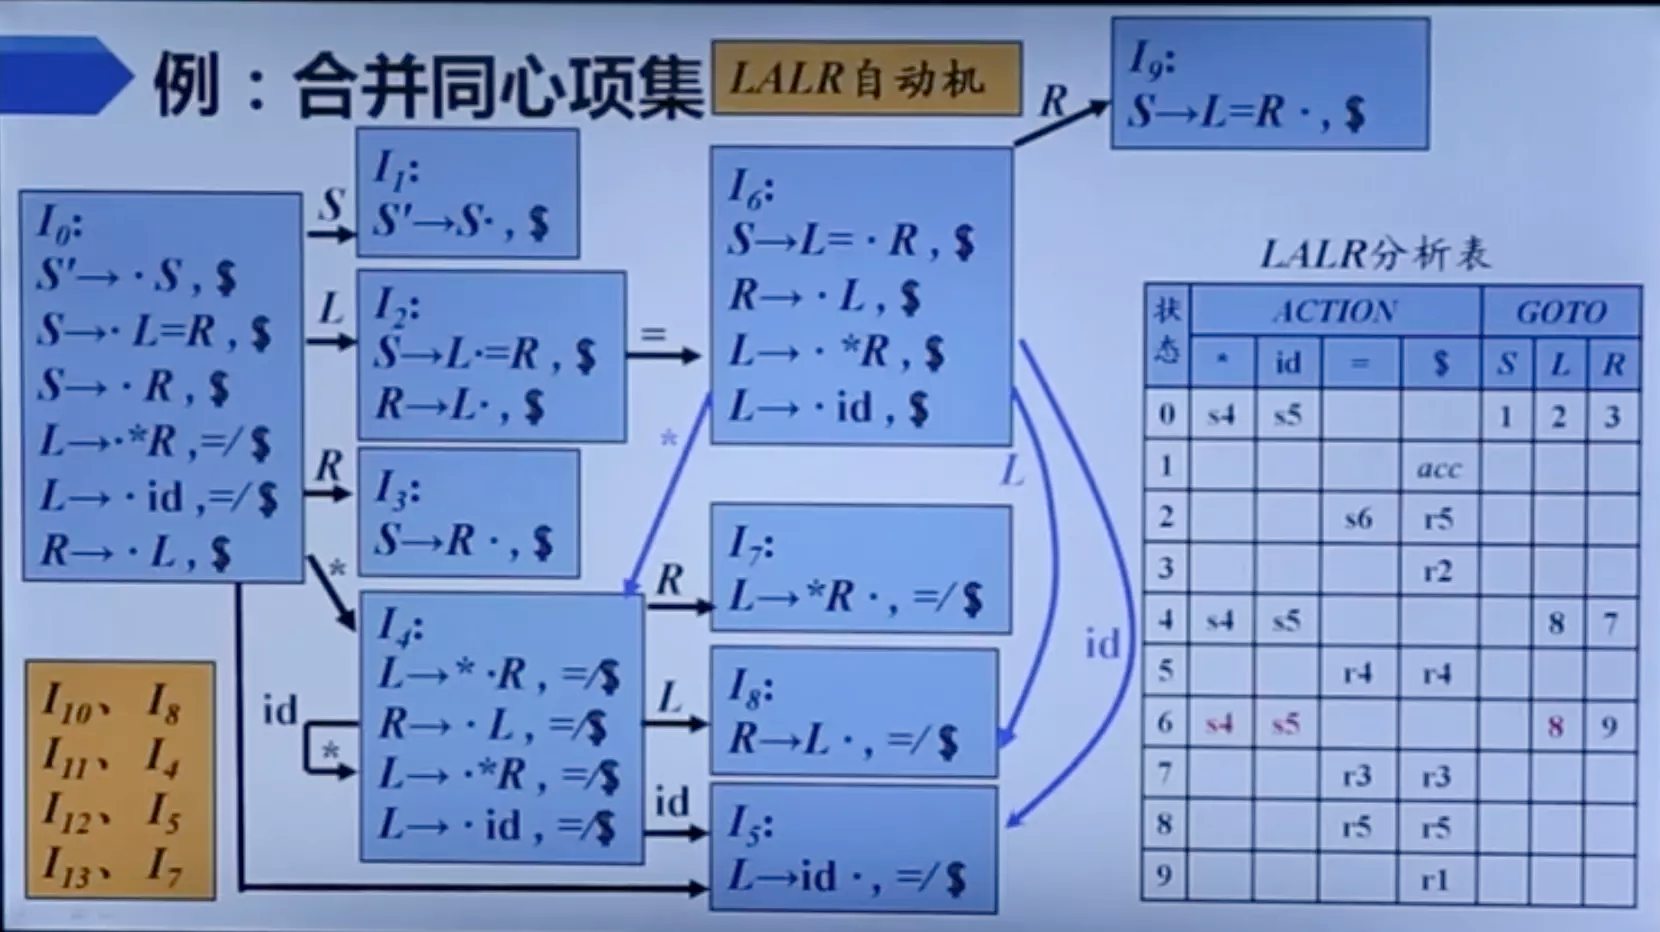 例：合并同心项集
LALR自动机
I9:
S→L=R ·, $
R
I1:
S'→S·, $
S
I0:
S'→ · S , $
S→· L=R , $
S→ · R , $
L→·*R ,=/ $
L→ · id ,=/ $
R→ · L , $
L
I2:
S→L·=R , $
R→L· , $
=
I6:
S→L= · R , $
R→ · L , $
L→ · *R , $
L→ · id , $
R
I3:
S→R · , $
*
*
L
id
I4:
L→* ·R , =/$
R→ · L , =/$
L→ ·*R , =/$
L→ · id , =/$
id
*
R
I7:
L→*R · , =/ $
L
I8:
R→L · , =/ $
id
I5:
L→id · , =/ $
I10、 I8
I11、 I4
I12、 I5
I13、 I7
LALR分析表
状态 ACTION GOTO
* id = $ S L R
0 s4 s5 1 2 3
1 acc
2 s6 r5
3 r2
4 s4 s5 8 7
5 r4 r4
6 s4 s5 8 9
7 r3 r3
8 r5 r5
9 r1